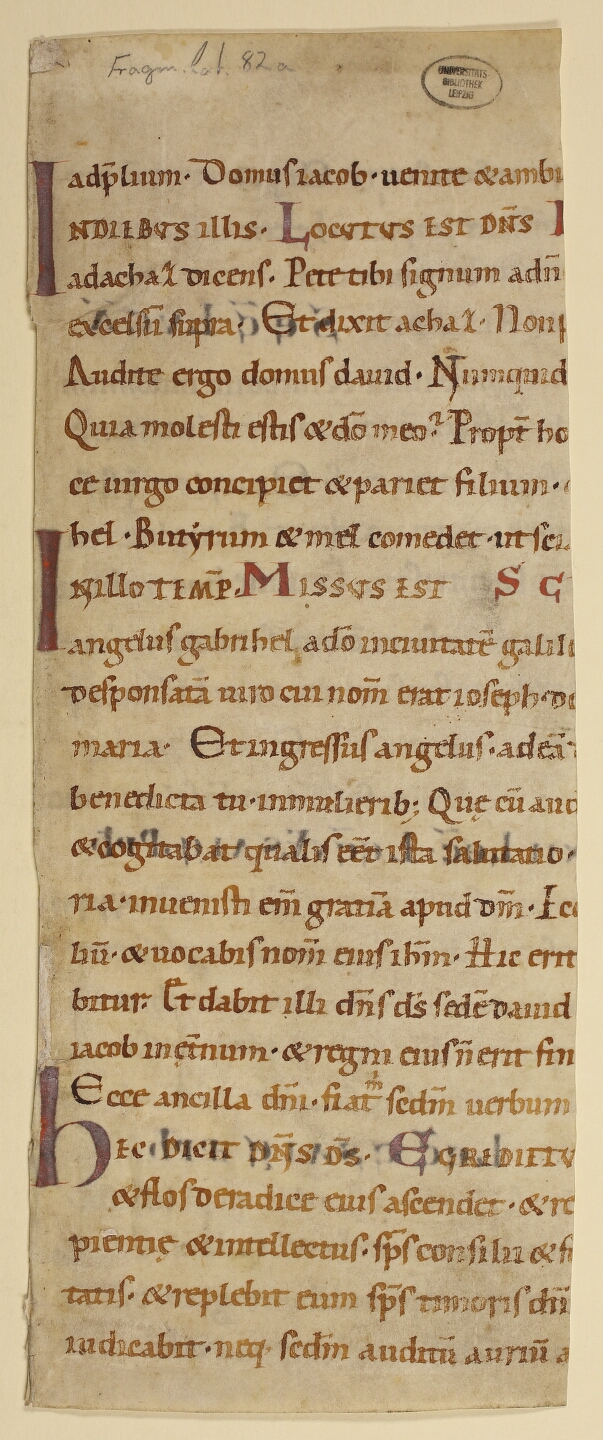 Fragm. lat. 82a
UNIVERSITÄTS
BIBLIOTHEK
LEIPZIG
adp̄lium· Domus iacob· uenite &ambu
INDIEBUS illis· LOCUTUS EST DN̄S
adachaz dicens· Pete tibi signum adn̄
excelsū supra· Et dixit achaz· Non p
Audite ergo domus dauid· Numquid
Quia molesti estis & dō meo? Propt̄ ho
ce uirgo concipiet & pariet filium·
hel· Butyrum & mel comedet· ut sci
INILLO TEMP̄. MISSUS EST S G
angelus gabrihel adō inciuitatē galile
desponsatā uiro cui nom̄ erat ioseph· de
maria· Et ingressus angelus· ad eā
benedicta tu· inmulierib; Quę cū aud
& cogitabat qualis eēt ista salutatio·
ria· inuenisti em̄ gratiā apud dm̄· Ecc
liū· & uocabis nom̄ eius ihm̄· Hic erit
bitur· Et dabit illi dn̄s ds̄ sedē dauid
iacob in et̄num· & regni eius n̄ erit fin
Ecce ancilla dn̄i· fiat m̄ sedm̄ uerbum
hEC DICIT DN̄S DS̄· EGREDITU
& flos deradice eius ascendet· & re
pientię & intellectus· sp̄s consilii & f
tatis· & replebit eum sp̄s timoris dn̄i
iudicabit· neq· sedm̄ auditū auriū a